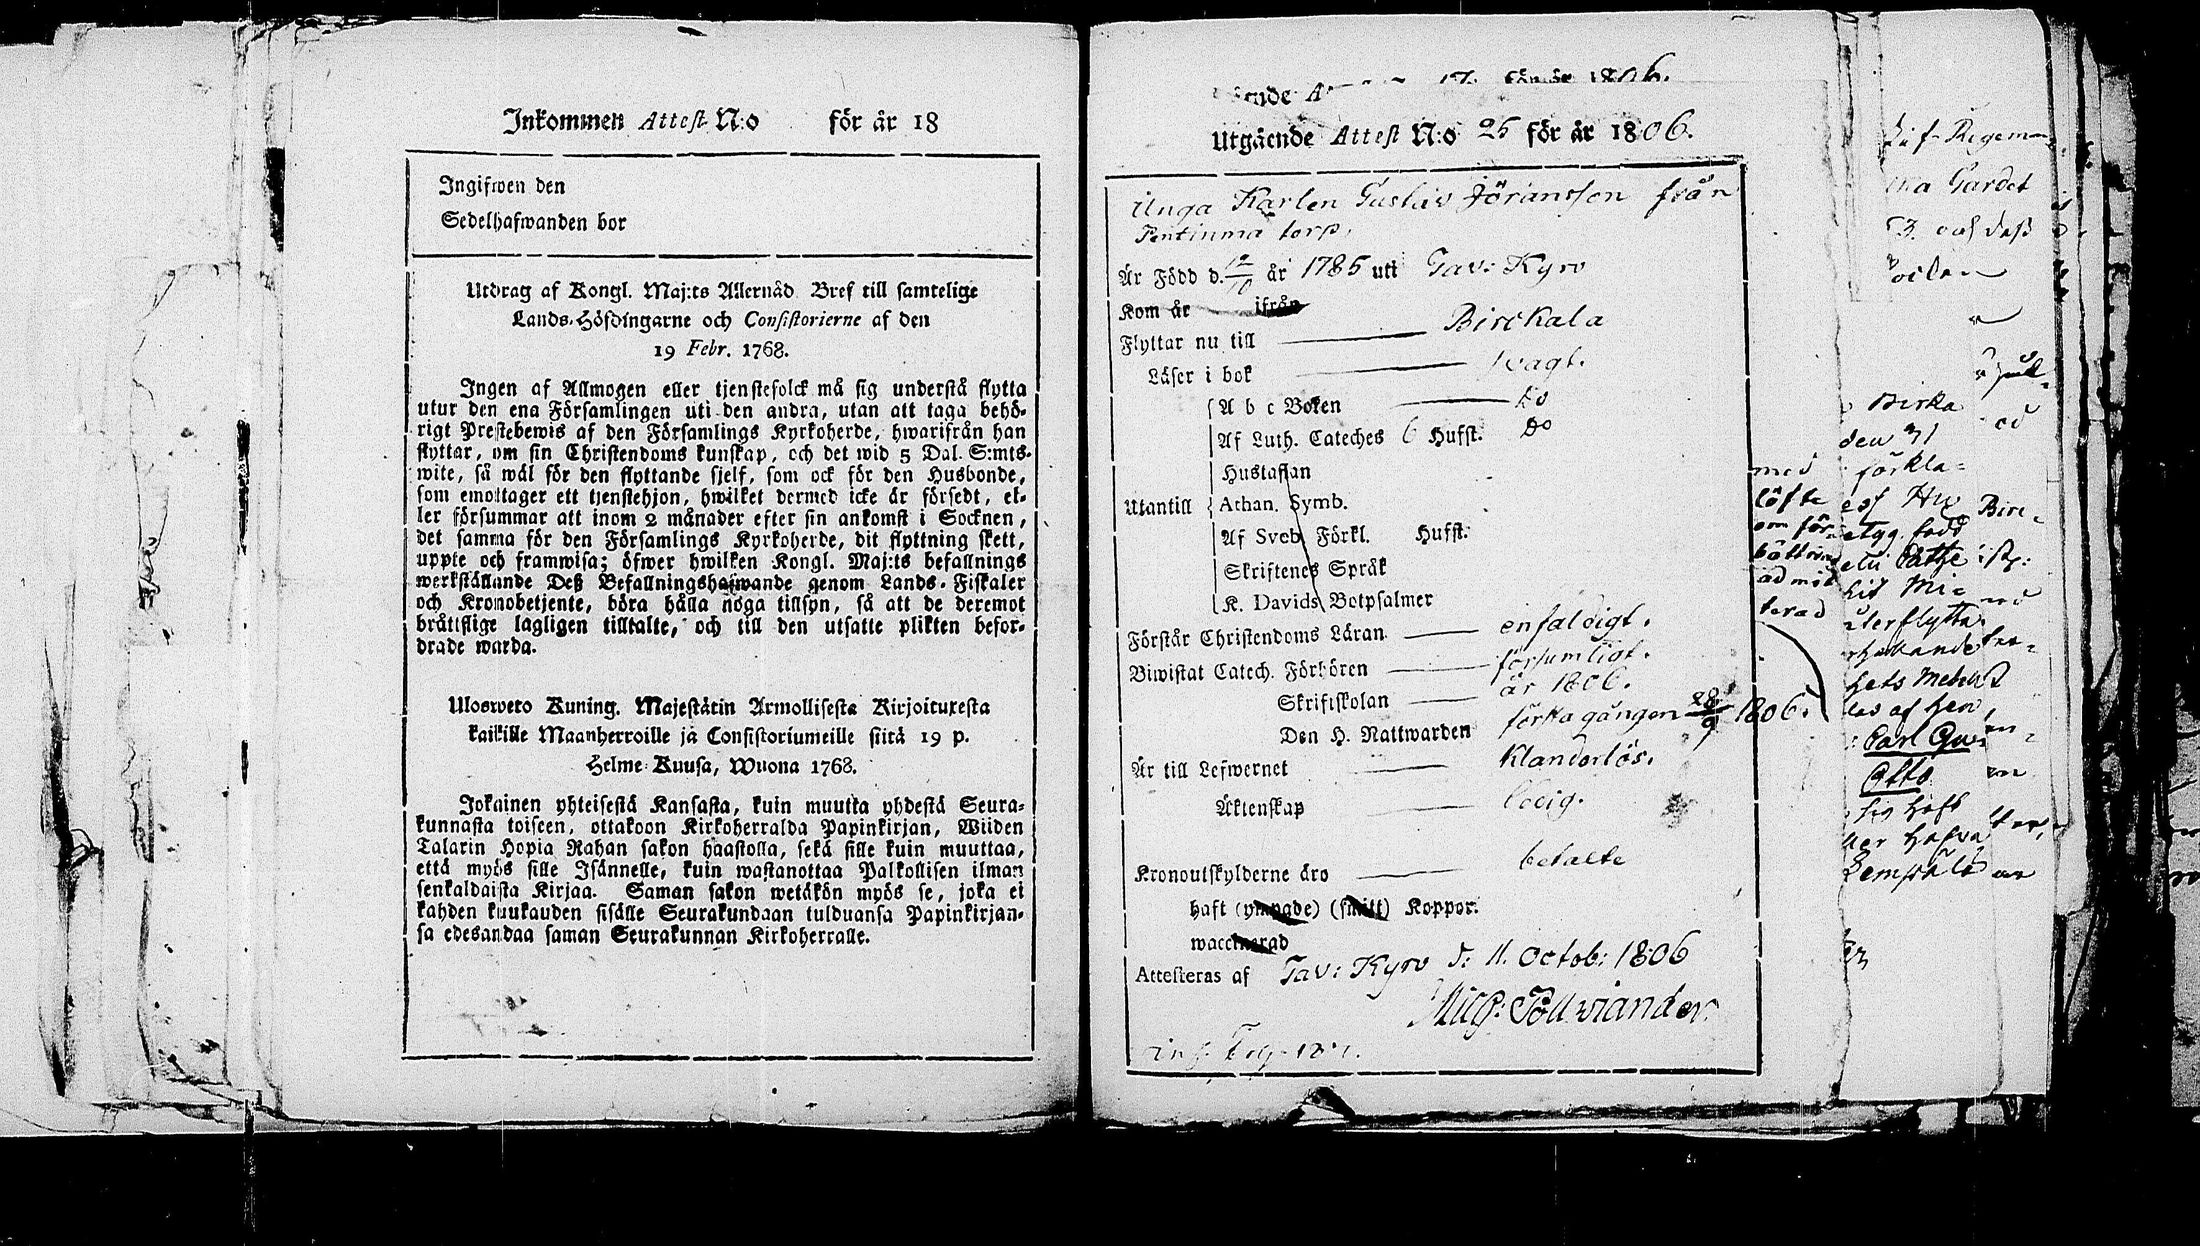 Inkommen Attest N:o för år 18
Ingifwen den
Sedelhafwanden bor
Utdrag af Kongl. Maj:ts Allernåd. Bref till samtelige
Lands-Höfdingarne och Consistorierne af den
19 Febr. 1768.
Ingen af Allmogen eller tjenstefolck må sig understå flytta
utur den ena Församlingen uti den andra, utan att taga behö-
rigt Prestebewis af den Församlings Kyrkoherde, hwarifrån han
flyttar, om sin Christendoms kunskap, och det wid 5 Dal. S:mts-
wite, så wäl för den flyttande sjelf, som ock för den Husbonde,
som emottager ett tjenstehjon, hwilket dermed icke är försedt, el-
ler försummar att inom 2 månader efter sin ankomst i Socknen,
det samma för den Församlings Kyrkoherde, dit flyttning skett,
uppte och framwisa; öfwer hwilken Kongl. Maj:ts befallnings
werkställande Deß Befallningshafwande genom Lands-Fiskaler
och Kronobetjente, böra hålla noga tillsyn, så att de deremot
bråttslige lagligen tilltalte, och till den utsatte plikten befor-
drade warda.
Ulosweto Kuning. Majestätin Armollisesta Kirjoituxesta
kaikille Maanherroille ja Consistoriumeille siitä 19 p.
Helme-Kuusa, Wuona 1768.
Jokainen yhteisestä Kansasta, kuin muutta yhdestä Seura-
kunnasta toiseen, ottakoon Kirkoherralda Papinkirjan, Wiiden
Talarin Hopia Rahan sakon haastolla, sekä sille kuin muuttaa,
että myös sille Isännelle, kuin wastanottaa Palkollisen ilman
senkaldaista Kirjaa. Saman sakon wetäkön myös se, joka ei
kahden kuukauden sisälle Seurakundaan tulduansa Papinkirjan-
sa edesandaa saman Seurakunnan Kirkoherralle.
17 för år 1806.
Utgäende Attest N:o 25 för år 1806.
Unga Karlen Gustav Jöransson från
Pentinma torp.
Är Född d. år 1785 uti Tav: Kyro
Kom år ifrån
Flyttar nu till Birckala
Läser i bok swagt.
A b c Boken do
Af Luth. Cateches 6 Hufst. Do
Hustaflan
Utantill Athan. Symb.
Af Sveb. Förkl. Hufst.
Skriftenes Språk
K. Davids Botpsalmer
Förstår Christendoms Läran enfaldigt.
Biwistat Catech. Förhören försumligt.
Skriftskolan år 1806.
Den H. Nattwarden första gången 28/9 1806.
Är till Lefwernet klanderlös.
Äktenskap ledig.
Kronoutskylderne äro betalte
haft (ympade) (smitt) Koppor.
waccinerad
Attesteras af Tav: Kyro d: 11. Octob: 1806
Mich: Pollviander
med
löfte
om för-
bättring
admit
terad
Regem
Gardet
3. och dess
Birka
den 31
förkla=
Hit Mi=
återflytta
Carl Gu
Otto
haft